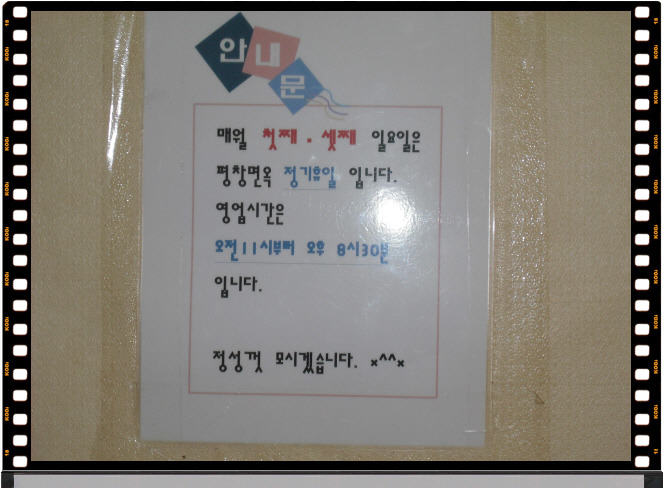 안내문
매월 첫째 . 셋째 일요일은
평창면옥 정기휴일 입니다.
영업시간은
오전11시부터 오후 8시30분
입니다.
정성껏 모시겠습니다. ×^^×